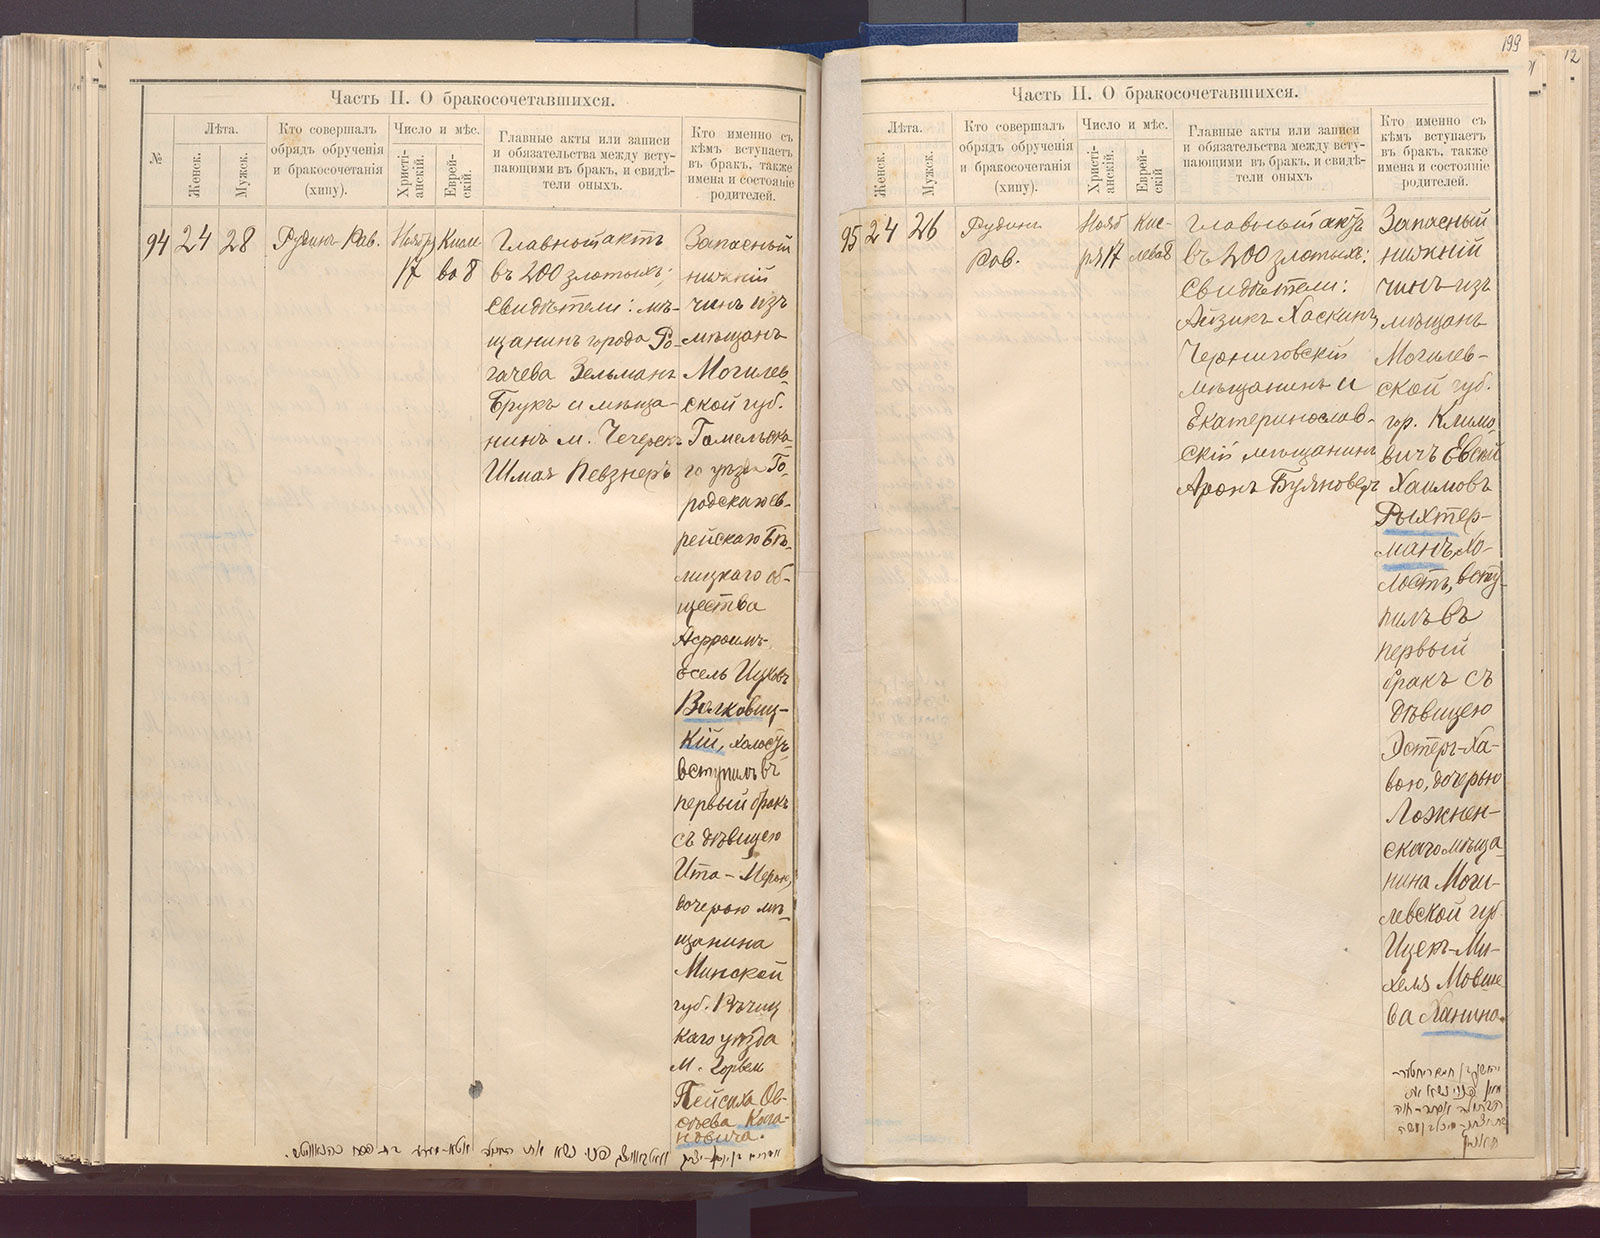 199
12
Часть II. О бракосочетавшихся.
№
Лѣта.
Женск.
Мужск.
Кто совершалъ
обрядъ обрученія
и бракосочетанія
(хипу).
Число и мѣс.
Христі-
анскій.
Еврей-
скій.
Главные акты или записи
и обязательства между всту-
пающими въ бракъ, и свидѣ-
тели оныхъ.
Кто именно съ
кѣмъ вступаетъ
въ бракъ, также
имена и состояніе
родителей.
94
24
28
Рудинъ Рав.
Ноября
17
ва 8
Главный актъ
въ 200 злотыхъ;
Свидѣтели: мѣ-
щанинъ города Ро-
гачева Зельманъ
Брукъ и мѣща-
нинъ м. Чечерск
Шмая Певзнеръ
Запасный
нижній
чинъ изъ
мѣщанъ
Могилев-
ской губ.
Гомельска-
го уѣзда Го-
родскаго ев-
рейскаго Бѣ-
лицкаго об-
щества
Афроимъ-
Осель Ицковъ
Волковиц-
кій, холостъ
вступилъ въ
первый бракъ
съ дѣвицею
Ита-Мерье,
дочерью мѣ-
щанина
Минской
губ. Рѣчиц
каго уѣзда
м. Горвель
Пейсаха Ов-
сѣева Кага-
новича.
Часть II. О бракосочетавшихся.
Лѣта.
Женск.
Мужск.
Кто совершалъ
обрядъ обрученія
и бракосочетанія
(хипу).
Число и мѣс.
Христі-
анскій.
Еврей-
скій
Главные акты или записи
и обязательства между всту-
пающими въ бракъ, и свидѣ-
тели оныхъ
Кто именно съ
кѣмъ вступаетъ
въ бракъ, также
имена и состояніе
родителей.
95
24
26
Рудинъ
Рав.
Нояб
ря 17
Кис-
лева 8
Главный актъ
въ 200 злотыхъ:
Свидѣтели:
Айзикъ Хаскинъ
Черниговскій
мѣщанинъ и
Екатеринослав-
скій мѣщанинъ
Аронъ Буяновер
Запасный
нижній
чинъ изъ
мѣщанъ
Могилев-
ской губ.
гор. Климо
вичъ Евсей
Хаимовъ
Рыхтер-
манъ, хо-
лостъ, всту-
пилъ въ
первый
бракъ съ
дѣвицею
Эстеръ-Ха-
вою, дочерью
Ложнен-
скаго мѣща
нина Моги-
левской губ.
Ицек-Ми-
хеля Мовше
ва Ханина.